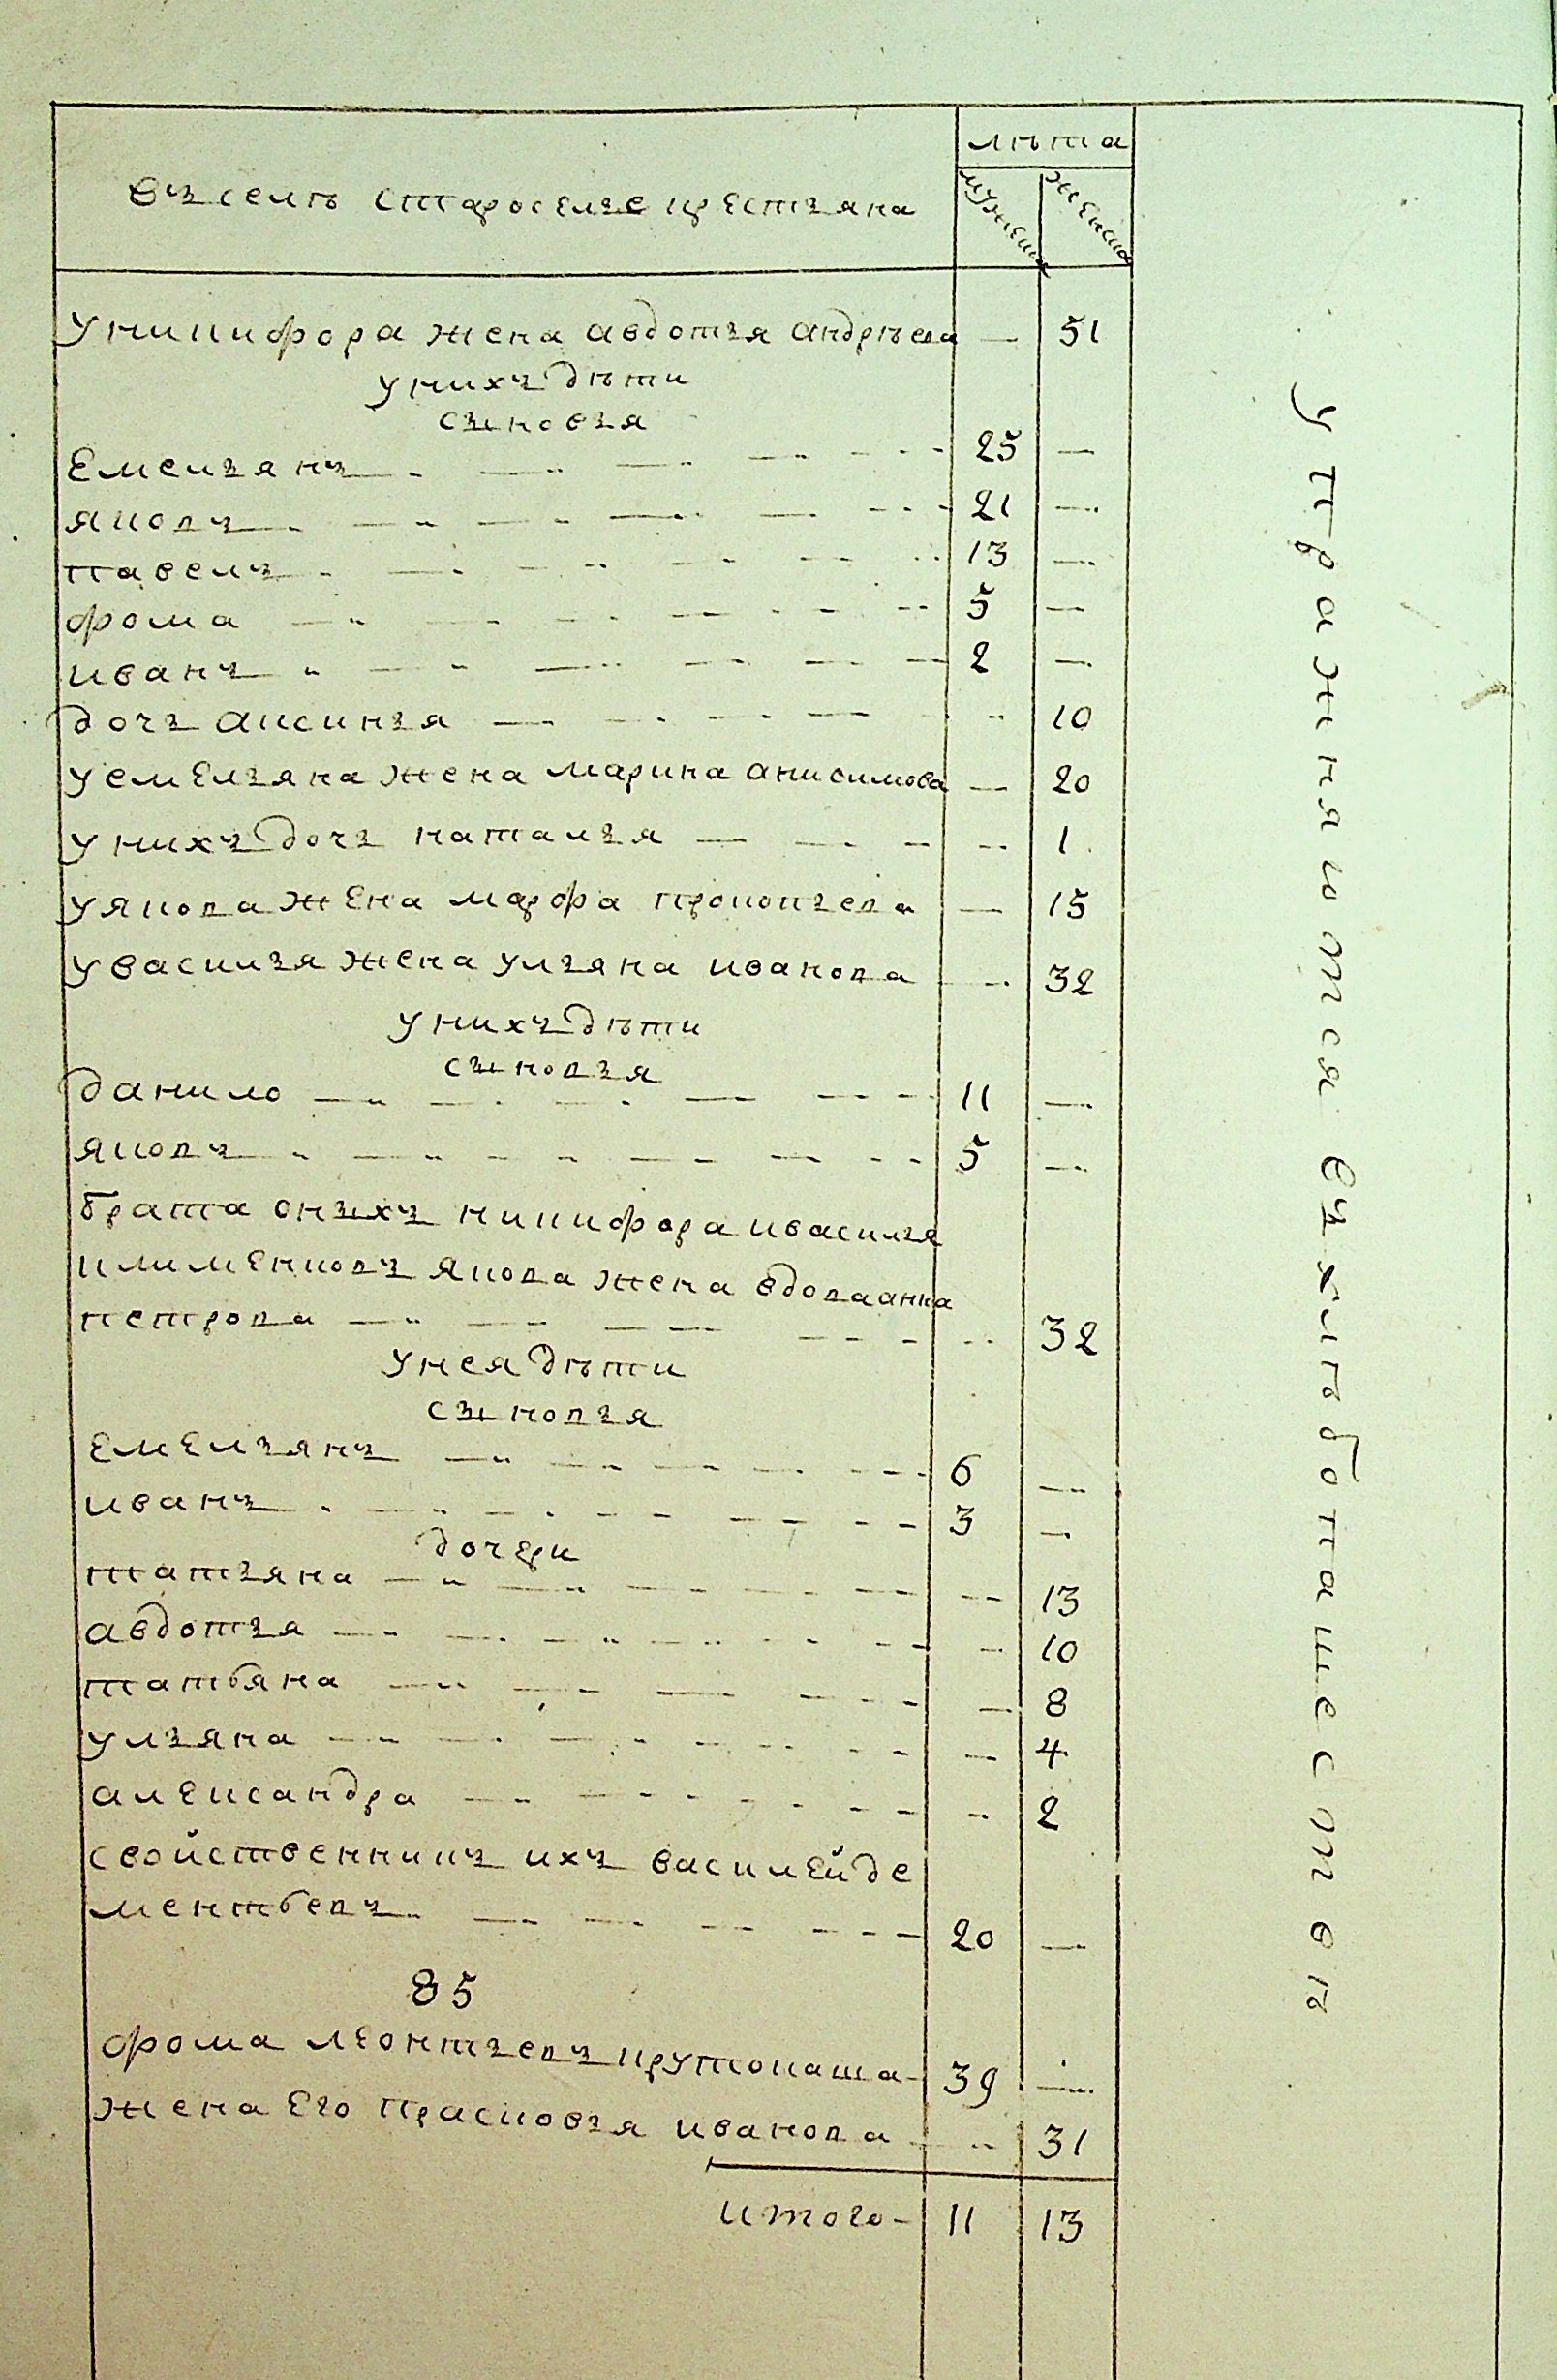 лѣта
въ селѣ староселье крестьяна
мужеска
женска
у никифора жена авдотья андрѣева — 51
у нихъ дѣти
сыновья
Емельянъ 25 —
яковъ 21 —
павелъ 13 —
фома 5 —
иванъ 2 —
дочь аксинья 10
у емельяна жена марина анисимова — 20
у нихъ дочь наталья — 1
у якова жена марфа прокопьева — 15
у василья жена ульяна иванова — 32
у нихъ дѣти
сыновья
данило 11 —
яковъ 5 —
брата оныхъ никифора и василья
клименковъ якова жена вдова анна
петрова — 32
у нея дѣти
сыновья
емельянъ 6 —
иванъ 3 —
дочери
татьяна — 13
авдотья — 10
татьяна — 8
ульяна — 4
александра — 2
свойственникъ ихъ василей де
ментьевъ 20 —
85
фома леонтьевъ крутокаша 39 —
жена его прасковья иванова — 31
итого 11 13
упражняются въ хлѣбопашествѣ